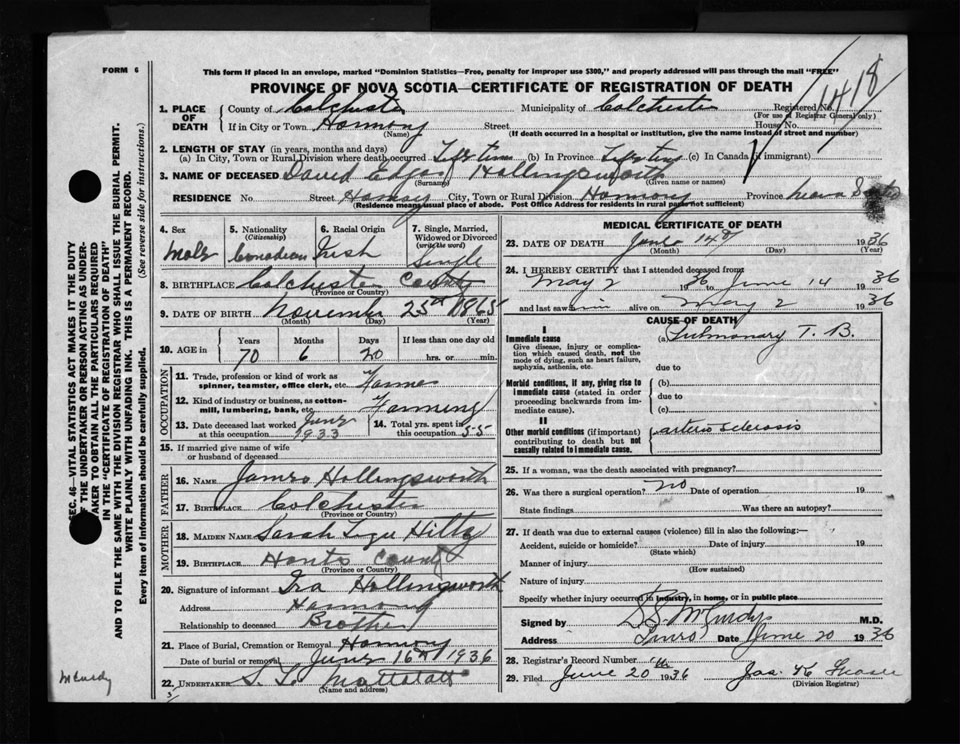 FORM 6
This form if placed in an envelope, marked "Dominion Statistics—Free, penalty for improper use $300," and properly addressed will pass through the mail "FREE"
PROVINCE OF NOVA SCOTIA—CERTIFICATE OF REGISTRATION OF DEATH
1418
1. PLACE OF DEATH County of Colchester Municipality of Colchester Registered No.
(For use of Registrar General only)
If in City or Town Harmony Street House No.
(Name) (If death occurred in a hospital or institution, give the name instead of street and number)
2. LENGTH OF STAY (in years, months and days)
(a) In City, Town or Rural Division where death occurred Lifetime (b) In Province Lifetime (c) In Canada (if immigrant)
3. NAME OF DECEASED David Edgar Hollingsworth
(Surname) (Given name or names)
RESIDENCE No. Street City, Town or Rural Division Harmony Province Nova Scotia
(Residence means usual place of abode. Post Office Address for residents in rural parts not sufficient)
4. Sex Male
5. Nationality (Citizenship) Canadian
6. Racial Origin Irish
7. Single, Married, Widowed or Divorced (write the word) Single
8. BIRTHPLACE Colchester County
(Province or Country)
9. DATE OF BIRTH November 25th 1865
(Month) (Day) (Year)
10. AGE in Years Months Days If less than one day old
70 6 20 hrs. or min.
OCCUPATION
11. Trade, profession or kind of work as spinner, teamster, office clerk, etc. Farmer
12. Kind of industry or business, as cotton-mill, lumbering, bank, etc. Farming
13. Date deceased last worked at this occupation June 1933
14. Total yrs. spent in this occupation 55
15. If married give name of wife or husband of deceased
FATHER
16. NAME James Hollingsworth
17. BIRTHPLACE Colchester
(Province or Country)
MOTHER
18. MAIDEN NAME Sarah Hiltz
19. BIRTHPLACE Hants County
(Province or Country)
20. Signature of informant Ira Hollingsworth
Address Harmony
Relationship to deceased Brother
21. Place of Burial, Cremation or Removal Harmony
Date of burial or removal June 16th 1936
22. UNDERTAKER S. L. Mattatall
(Name and address)
MEDICAL CERTIFICATE OF DEATH
23. DATE OF DEATH June 14th 1936
(Month) (Day)
24. I HEREBY CERTIFY that I attended deceased from
May 2 1936 June 14 1936
and last saw him alive on May 2 1936
CAUSE OF DEATH
I
Immediate cause
Give disease, injury or complication which caused death, not the mode of dying, such as heart failure, asphyxia, asthenia, etc.
(a) Pulmonary T. B.
due to
Morbid conditions, if any, giving rise to immediate cause (stated in order proceeding backwards from immediate cause).
(b)
due to
(c)
II
Other morbid conditions (if important) contributing to death but not causally related to immediate cause.
arterio sclerosis
25. If a woman, was the death associated with pregnancy?
26. Was there a surgical operation? no Date of operation 19
State findings Was there an autopsy?
27. If death was due to external causes (violence) fill in also the following:—
Accident, suicide or homicide? Date of injury 19
(State which)
Manner of injury
(How sustained)
Nature of injury
Specify whether injury occurred in industry, in home, or in public place
Signed by S. McCurdy M.D.
Address Truro Date June 20 1936
28. Registrar's Record Number
29. Filed June 20th 1936 Jas.
(Division Registrar)
SEC. 46—VITAL STATISTICS ACT MAKES IT THE DUTY
OF THE UNDERTAKER OR PERSON ACTING AS UNDER-
TAKER TO OBTAIN ALL THE PARTICULARS REQUIRED
IN THE "CERTIFICATE OF REGISTRATION OF DEATH"
AND TO FILE THE SAME WITH THE DIVISION REGISTRAR WHO SHALL ISSUE THE BURIAL PERMIT.
WRITE PLAINLY WITH UNFADING INK. THIS IS A PERMANENT RECORD.
Every item of information should be carefully supplied. (See reverse side for instructions.)
McCurdy